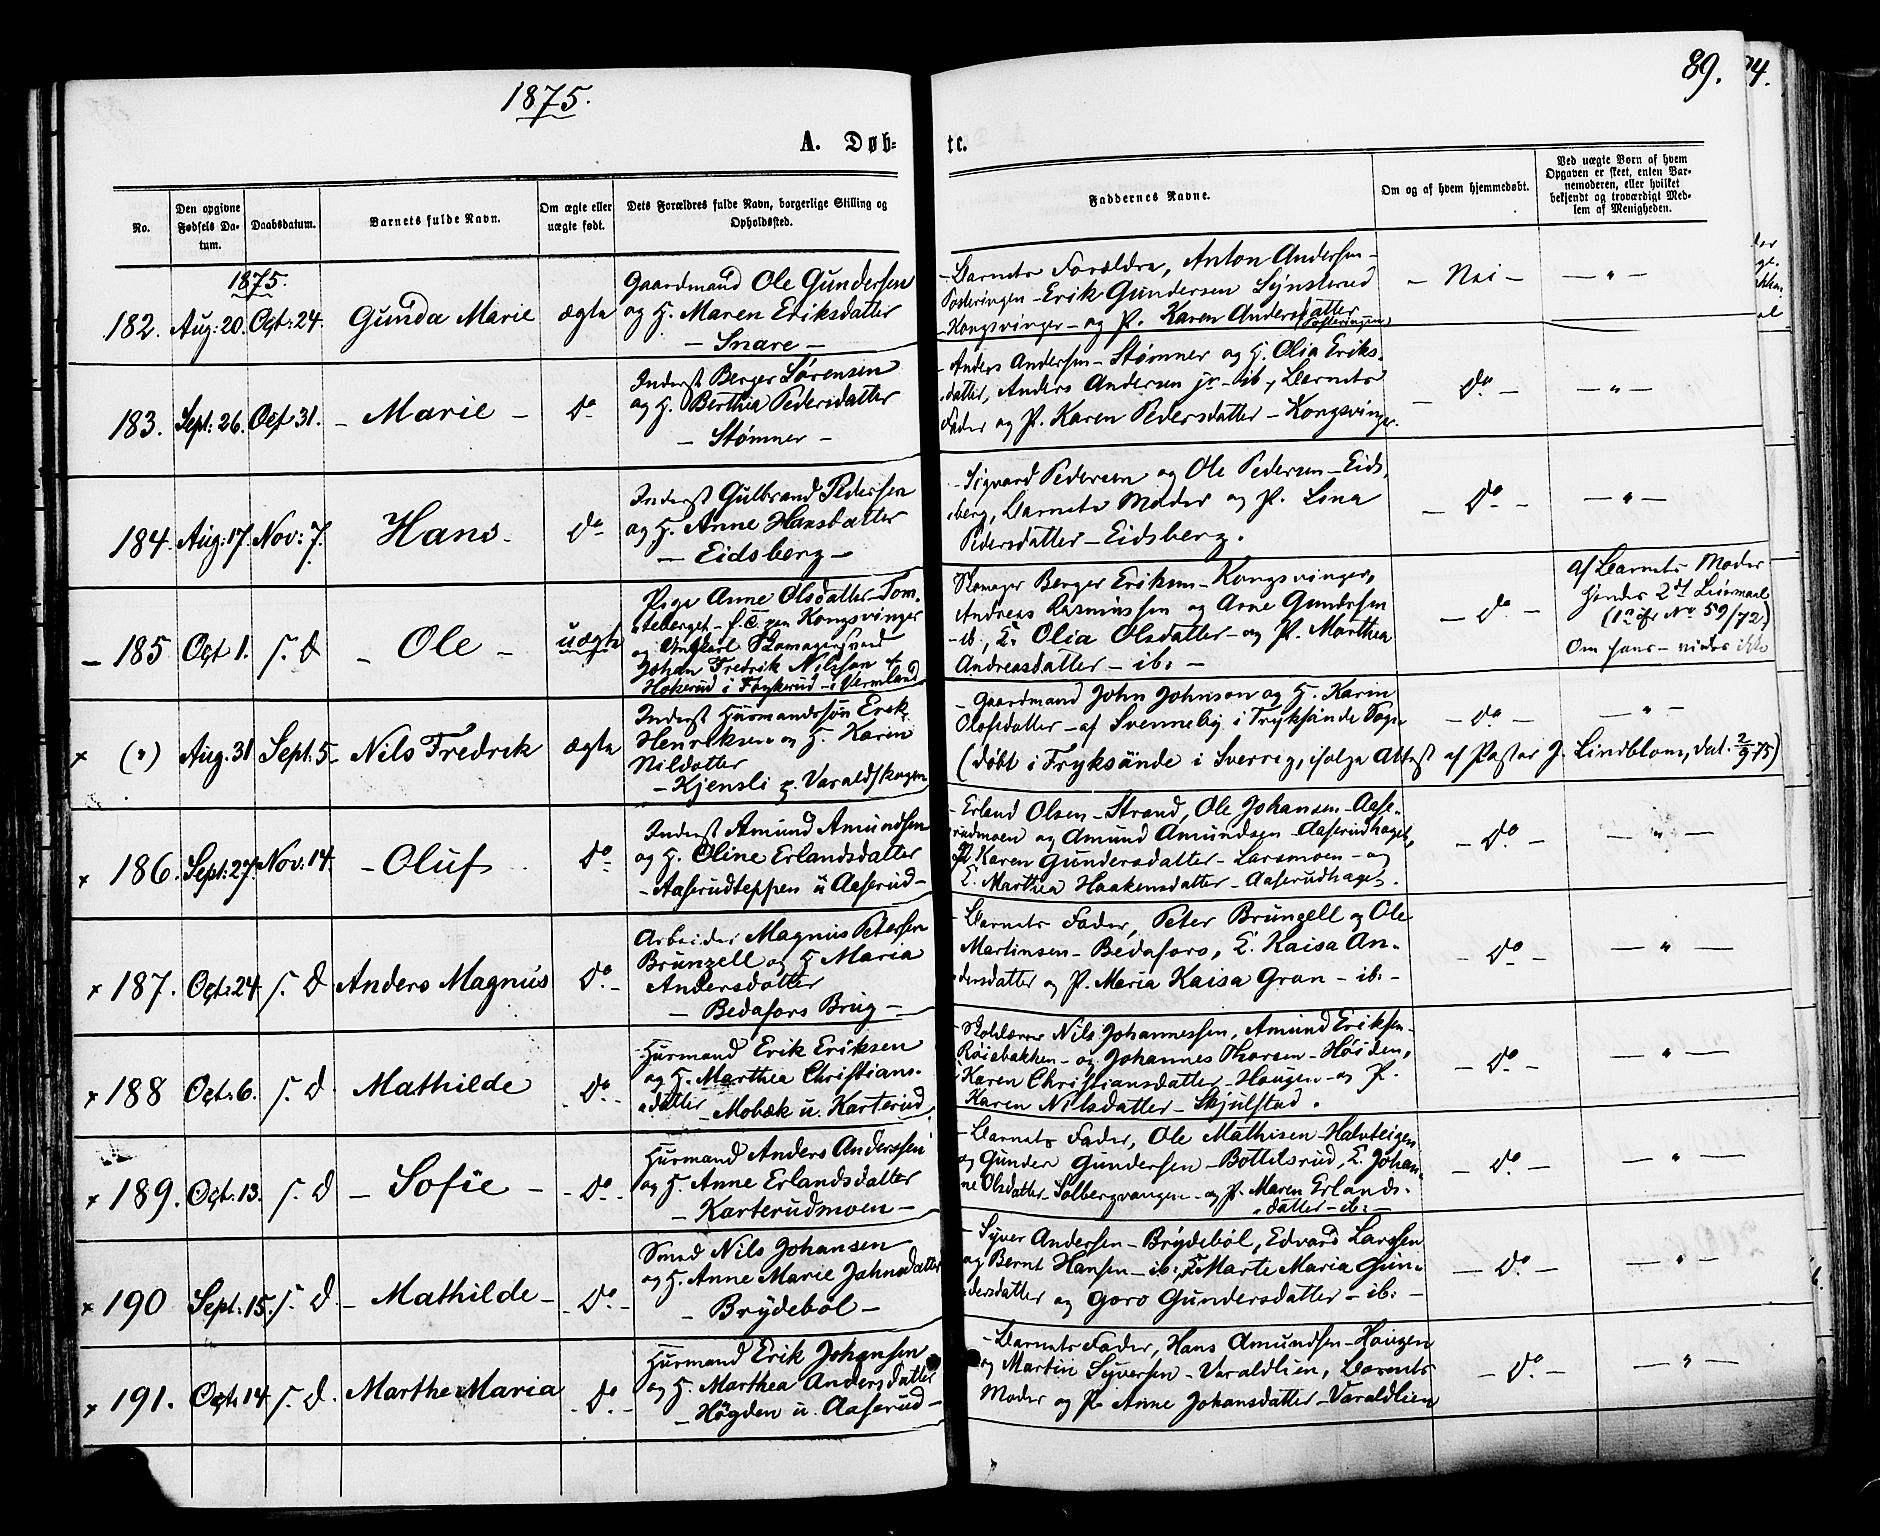 1875.
89.
A. Døb-
te.
No.
Den opgivne Fødsels Da-tum.
Daabsdatum.
Barnets fulde Navn.
Om ægte eller uægte født.
Dets Forældres fulde Navn, borgerlige Stilling og Opholdssted.
Faddernes Navne.
Om og af hvem hjemmedøbt.
Ved uægte Børn af hvem Opgaven er skeet, enten Bar-nemoderen, eller hvilket bekjendt og troværdigt Med-lem af Menigheden.
1875.
182. Aug: 20. Oct: 24. Gunda Marie ægte
Gaardmand Ole Gundersen
og H. Maren Eriksdatter
- Snare -
- Barnets Forældre, Anton Andersen -
- Erik Gundersen
Kongsvinger - og P. Karen Andersdatter
- Nei - - " -
183. Sept: 26. Oct 31. - Marie - do
Inderst Berger Sørensen
og H. Berthea Pedersdatter
- Stømner -
- Anders Andersen - Stømner og H. Olia Eriks-
datter, Anders Andersen jr - ib., Barnets
Fader og P. Karen Pedersdatter - Kongsvinger.
- do - - " -
184. Aug: 17. Nov: 7. Hans - do
Inderst Gulbrand Pedersen
og H. Anne Hansdatter
- Eidsberg -
- Sigvard Pedersen og Ole Pedersen - Eids-
berg, Barnets Moder og P. Lina
Pedersdatter - Eidsberg.
- do - - " -
- 185 Oct 1. s. D - Ole - uægte
Pige Anne Olsdatter - Tom-
steberget - Kongsvinger
og Ungkarl Skomagersvend
Johan Fredrik Nilsson
Hokerud i Frykerud - i Vermland
Skomager Berger Eriksen - Kongsvinger,
Andreas Rasmussen og Arne Gundersen
- ib., E. Olia Olsdatter - og P. Marthea
Andreasdatter - ib: -
- do -
Af Barnets Moder
Hendes 2det Leiermaal
(1ste No 59/72.)
Om hans - vides ikke
x (") Aug. 31 Sept: 5 - Nils Fredrik ægte
Inderst Husmandssøn Erik
Henriksen og H. Karin
Nilsdatter
- Kjensli p. Varaldskogen
- Gaardmand John Johnson og H. Karin
Olofsdatter - af Svenneby i Fryksände Sogn
- do - - " -
(døbt i Fryksände i Sverrig, ifølge Attest af Pastor J. Lindblom, dat. 2/9 75)
x 186. Sept: 27. Nov: 14. - Oluf do
Inderst Amund Amundsen
og H. Oline Erlandsdatter
- Aaserudteppen u Aaserud -
- Erland Olsen - Strand, Ole Johansen - Aase-
rudmoen og Amund Amundsen - Aaserudhaget,
P. Karen Gundersdatter - Larsmoen - og
E. Marthea Haakensdatter - Aaserudhaget.
- do - - " -
x 187. Oct: 24. s. D Anders Magnus do -
Arbeider Magnus Petersen
Brunzell og H Maria
Andersdatter
- Bedafors Brug -
- Barnets Fader, Peter Brunzell og Ole
Martinsen - Bedafors, E. Kaisa An-
dersdatter og P. Maria Kaisa Gran - ib:
- do - - " -
x 188 Oct: 6. s. D. Mathilde - do -
Husmand Erik Eriksen
og H. Marthea Christians-
datter
- Mobæk u. Karterud
- Skolelærer Nils Johannessen, Amund Eriksen -
Røiebakken - og Johannes Thorsen - Høiden,
Karen Christiansdatter - Haugen - og P.
Karen Nilsdatter - Skjulstad.
- do - - " -
x 189. Oct: 13. s. D - Sofie - - do -
Husmand Anders Anderssen
og H. Anne Erlandsdatter
- Karterudmoen -
- Barnets Fader, Ole Mathisen - Halvteigen
og Gunder Gundersen - Bottilsrud, E. Johan-
ne Olsdatter - Solbergvangen - og P. Maren Erlands-
datter - ib: -
- do - - " -
x 190 Sept: 15. s. D. - Mathilde - - do -
Smed Nils Johansen
og H. Anne Marie Jahnsdatter
- Brydebøl -
- Syver Andersen - Brydebøl, Edvard Larssen
og Bernt Hansen - ib:, E Marte Maria Gun-
dersdatter og Goro Gundersdatter - ib: -
- do - - " -
x 191. Oct: 14 s. D. Marthe Maria - do -
Husmand Erik Johansen
og H. Marthea Andersdatter
- Høgden u. Aaserud -
- Barnets Fader, Hans Amundsen - Haugen
og Martin Syversen - Varaldlien, Barnets
Moder og P. Anne Johansdatter - Varaldlien
- do - - " -